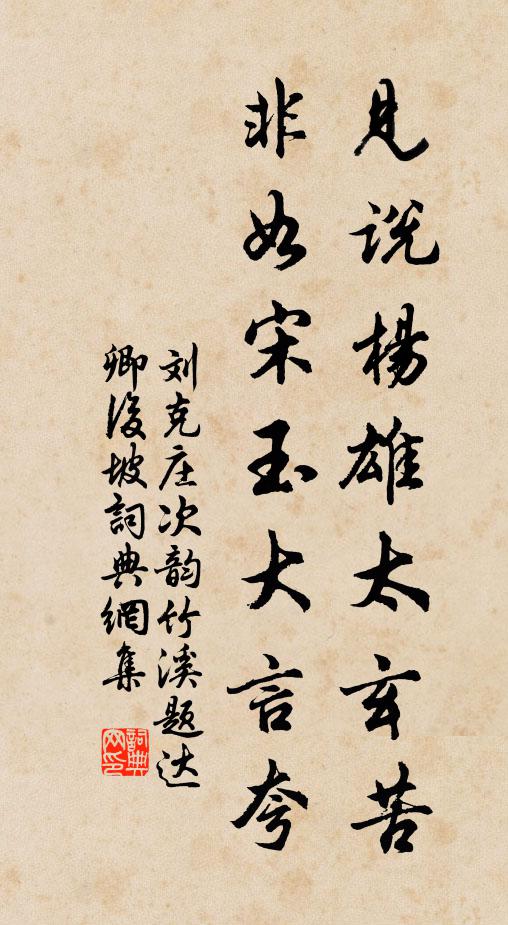 見説楊雄太玄苦
非如宋玉大言夸
刘克庄次韵竹溪题达
卿後坡詞典網集
詞典网印